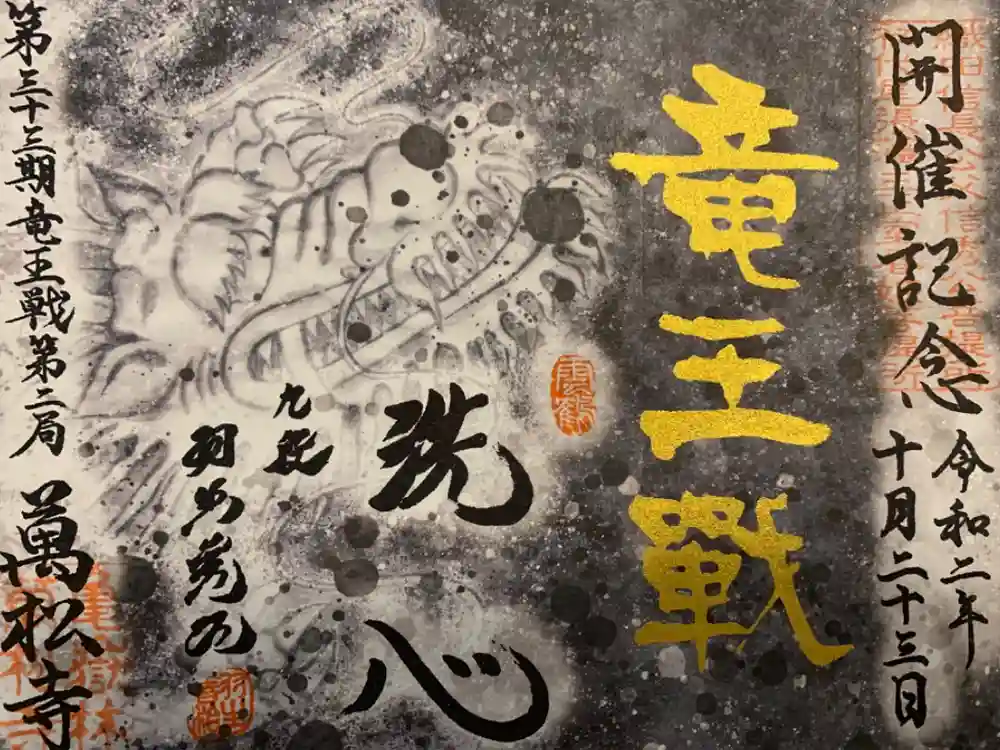 開催記念
令和二年
十月二十三日
竜王戰
洗心
九段
羽生善治
第三十三期竜王戦第二局
萬松寺